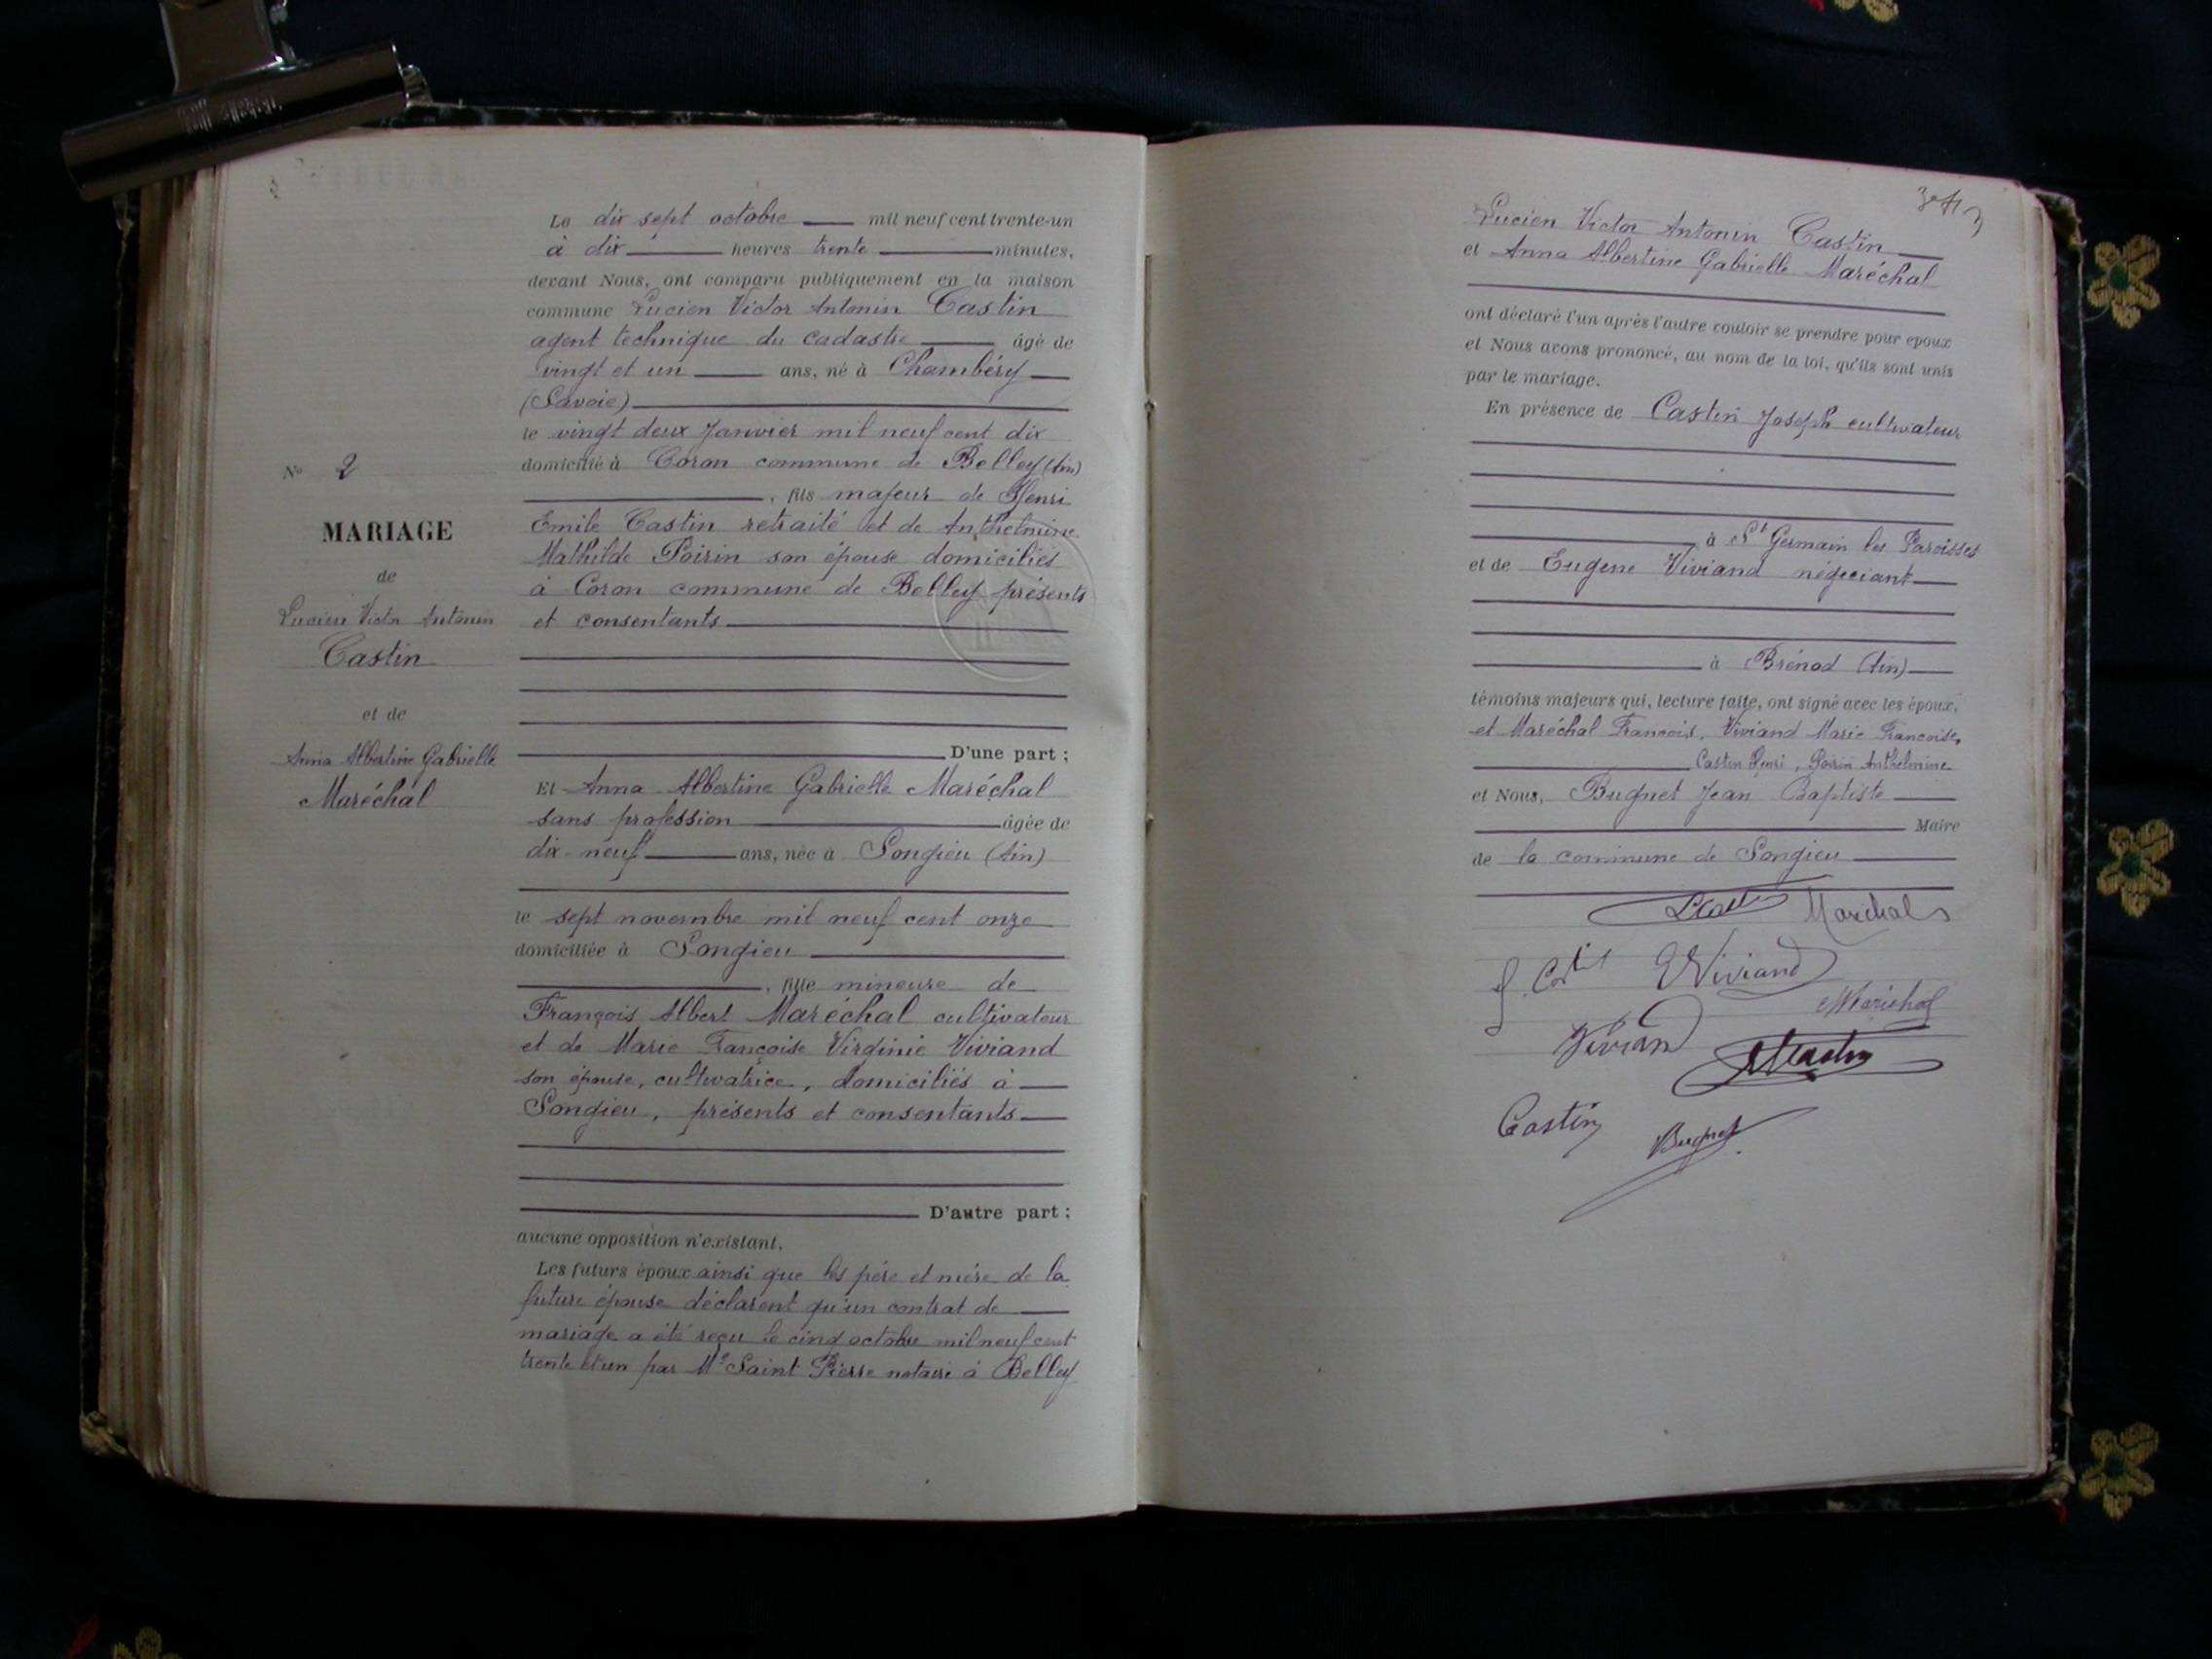 Nº 2
MARIAGE
de
Lucien Victor Antonin
Castin
et de
Anna Albertine Gabrielle
Maréchal
Le dix sept octobre mil neuf cent trente-un
à dix heures trente minutes,
devant Nous, ont comparu publiquement en la maison
commune Lucien Victor Antonin Castin
agent technique du cadastre âgé de
vingt et un ans, né à Chambéry
(Savoie)
le vingt deux Janvier mil neuf cent dix
domicilié à Coron commune de Belley (Ain)
, fils majeur de Henri
Emile Castin retraité et de Anthelmine
Mathilde Poirin son épouse domiciliés
à Coron commune de Belley présents
et consentants
D'une part ;
Et Anna Albertine Gabrielle Maréchal
sans profession âgée de
dix-neuf ans, née à Songieu (Ain)
le sept novembre mil neuf cent onze
domiciliée à Songieu
, fille mineure de
François Albert Maréchal cultivateur
et de Marie Françoise Virginie Viviand
son épouse, cultivatrice, domiciliés à
Songieu, présents et consentants
D'autre part ;
aucune opposition n'existant.
Les futurs époux ainsi que les père et mère de la
future épouse déclarent qu'un contrat de
mariage a été reçu le cinq octobre mil neuf cent
trente et un par Me Saint Pierre notaire à Belley
Lucien Victor Antonin Castin
et Anna Albertine Gabrielle Maréchal
ont déclaré l'un après l'autre vouloir se prendre pour époux
et Nous avons prononcé, au nom de la loi, qu'ils sont unis
par le mariage.
En présence de Castin Joseph cultivateur
à St Germain les Paroisses
et de Eugène Viviand négociant
à Brénod (Ain)
témoins majeurs qui, lecture faite, ont signé avec les époux,
et Maréchal François, Viviand Marie Françoise,
Castin Henri, Poirin Anthelmine
et Nous, Bugnet Jean Baptiste
Maire
de la commune de Songieu
Maréchal
Viviand
Maréchal
Viviand
Castin
Bugnet